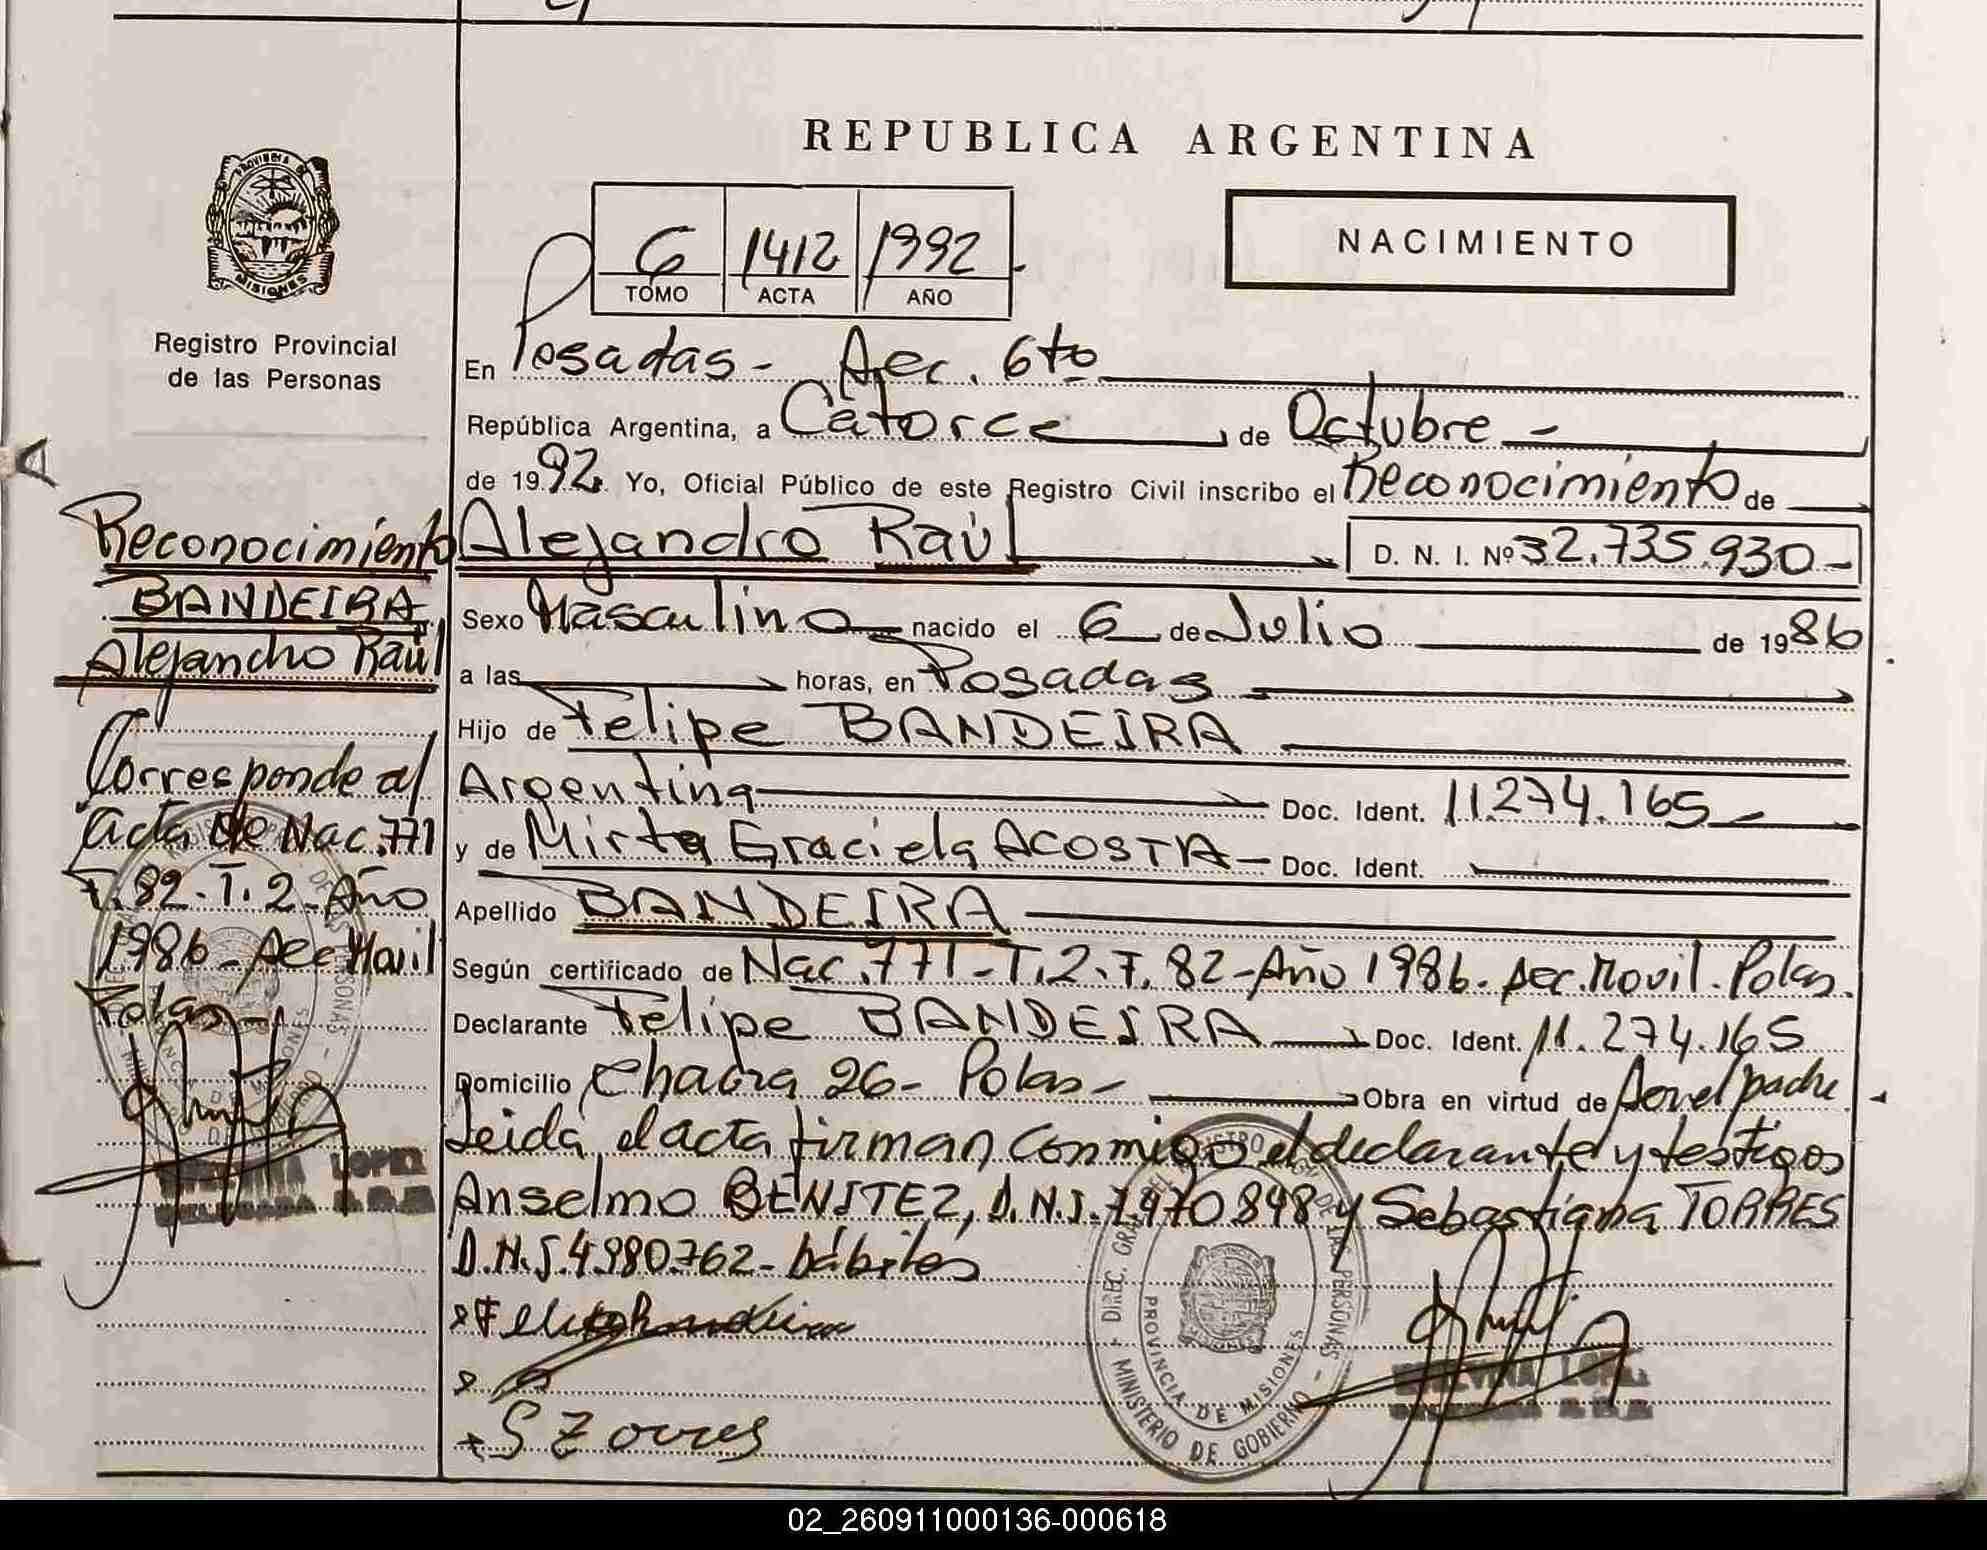 REPUBLICA ARGENTINA
PROVINCIA DE
MISIONES
Registro Provincial
de las Personas
6 1412 1992
TOMO ACTA AÑO
NACIMIENTO
En Posadas - Sec. 6to
República Argentina, a Catorce de Octubre -
de 1992. Yo, Oficial Público de este Registro Civil inscribo el Reconocimiento de
Alejandro Raúl D. N. I. Nº 32.735.930-
Sexo Masculino nacido el 6 de Julio de 1986
a las horas, en Posadas
Hijo de Felipe BANDEIRA
Argentina Doc. Ident. 11.274.165
y de Mirta Graciela ACOSTA - Doc. Ident.
Apellido BANDEIRA
Según certificado de Nac. 771 - T. 2. F. 82 - Año 1986. Sec. Movil. Pdas.
Declarante Felipe BANDEIRA Doc. Ident. 11.274.165
Domicilio Chacra 26 - Pdas - Obra en virtud de Ser el padre
Leida el acta firman conmigo el declarante y testigos
Anselmo BENITEZ, D.N.I. 7.970.848 y Sebastiana TORRES
D.N.I. 4.980.762 - hábiles
S Torres
Reconocimiento
BANDEIRA
Alejandro Raúl
Corresponde al
acta de Nac. 771
F. 82 - T. 2 - Año
1986 - Sec Movil
Pdas -
LOPEZ
PROVINCIA DE MISIONES
MINISTERIO DE GOBIERNO
LOPEZ
02_260911000136-000618